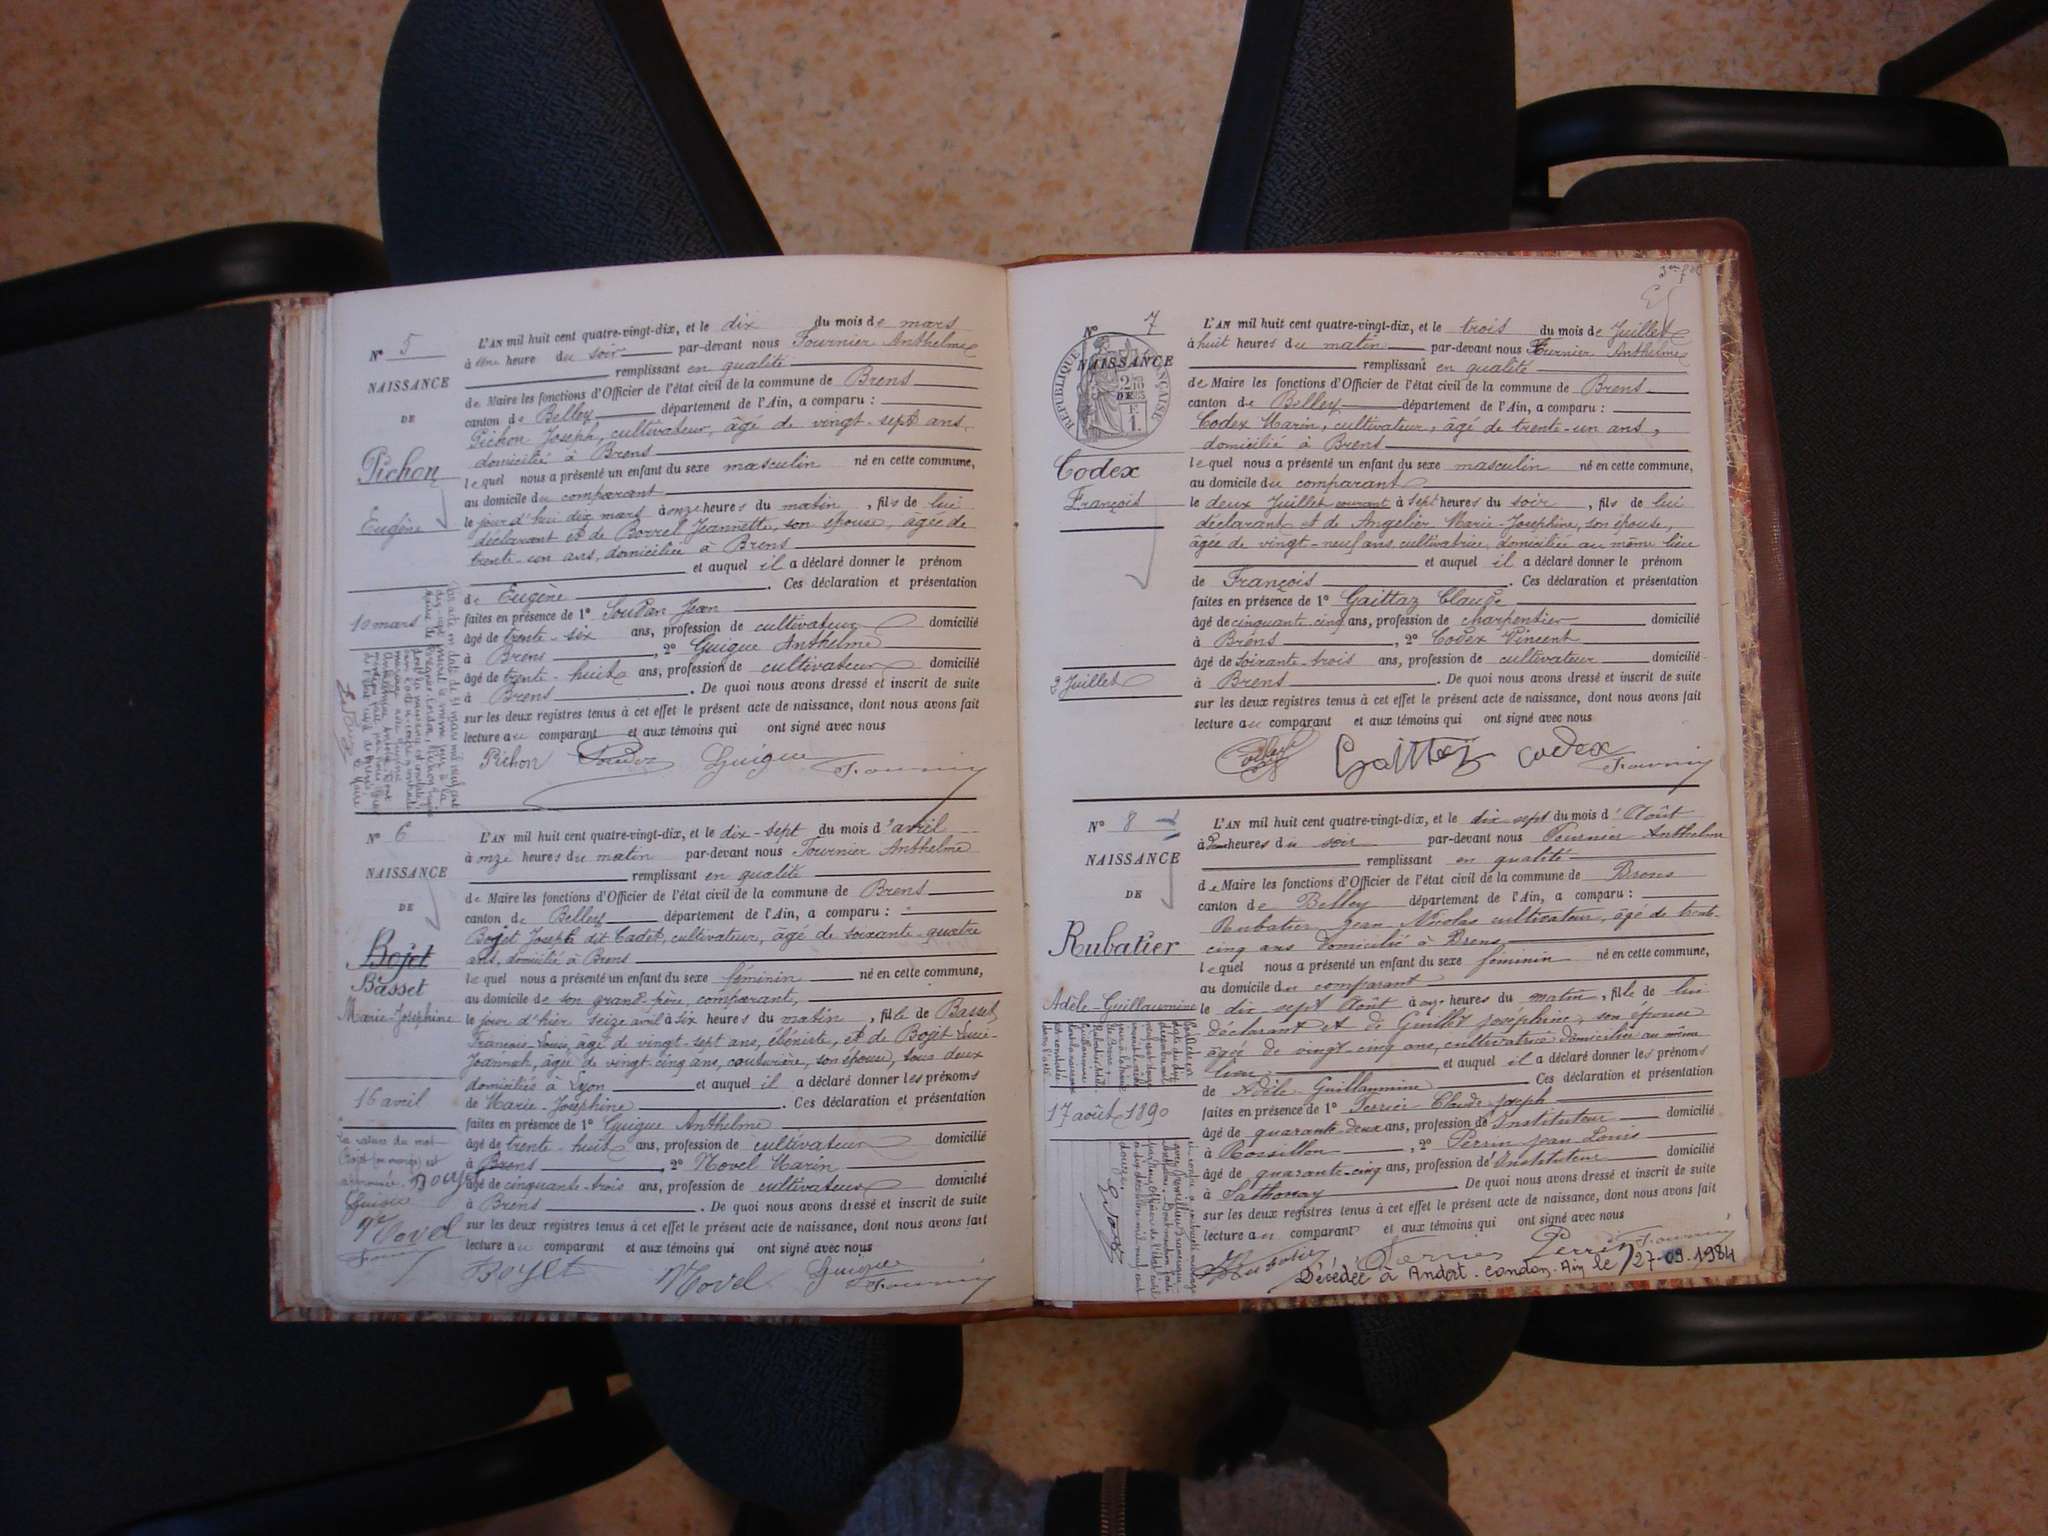 N° 5
NAISSANCE
DE
Pichon
Eugène
10 mars
L'AN mil huit cent quatre-vingt-dix, et le dix du mois de mars
à une heure du soir par-devant nous Fournier Anthelme
remplissant en qualité
de Maire les fonctions d'Officier de l'état civil de la commune de Brens
canton de Belley département de l'Ain, a comparu :
Pichon Joseph, cultivateur, âgé de vingt-sept ans,
domicilié à Brens
lequel nous a présenté un enfant du sexe masculin né en cette commune,
au domicile du comparant
le jour d'hui dix mars à onze heures du matin, fils de lui
déclarant et de Borrel Jeannette, son épouse, âgée de
trente-un ans, domiciliée à Brens
et auquel il a déclaré donner le prénom
de Eugène. Ces déclaration et présentation
faites en présence de 1° Soudan Jean
âgé de trente-six ans, profession de cultivateur domicilié
à Brens, 2° Guigue Anthelme
âgé de trente-huit ans, profession de cultivateur domicilié
à Brens. De quoi nous avons dressé et inscrit de suite
sur les deux registres tenus à cet effet le présent acte de naissance, dont nous avons fait
lecture au comparant et aux témoins qui ont signé avec nous
Pichon Guigue Fournier
N° 6
NAISSANCE
DE
Bojet
Basset
Marie-Josephine
16 avril
La rature du mot
Bojet (en marge) est
Boyet
Guigue
Novel
L'AN mil huit cent quatre-vingt-dix, et le dix-sept du mois d'avril
à onze heures du matin par-devant nous Fournier Anthelme
remplissant en qualité
de Maire les fonctions d'Officier de l'état civil de la commune de Brens
canton de Belley département de l'Ain, a comparu :
Bojet Joseph dit Cadet, cultivateur, âgé de soixante-quatre
ans, domicilié à Brens
lequel nous a présenté un enfant du sexe féminin né en cette commune,
au domicile de son grand-père, comparant,
le jour d'hier seize avril à six heures du matin, fille de Basset
François-Louis, âgé de vingt-sept ans, ébéniste, et de Bojet Lucie-
Jeannette, âgée de vingt-cinq ans, couturière, son épouse, tous deux
domiciliés à Lyon et auquel il a déclaré donner les prénoms
de Marie-Josephine. Ces déclaration et présentation
faites en présence de 1° Guigue Anthelme
âgé de trente-huit ans, profession de cultivateur domicilié
à Brens, 2° Novel Marin
âgé de cinquante-trois ans, profession de cultivateur domicilié
à Brens. De quoi nous avons dressé et inscrit de suite
sur les deux registres tenus à cet effet le présent acte de naissance, dont nous avons fait
lecture au comparant et aux témoins qui ont signé avec nous
Boyet Novel Guigue Fournier
N° 7
RÉPUBLIQUE FRANÇAISE
NAISSANCE
DE
Codex
François
2 Juillet
L'AN mil huit cent quatre-vingt-dix, et le trois du mois de Juillet
à huit heures du matin par-devant nous Fournier Anthelme
remplissant en qualité
de Maire les fonctions d'Officier de l'état civil de la commune de Brens
canton de Belley département de l'Ain, a comparu :
Codex Marin, cultivateur, âgé de trente-un ans,
domicilié à Brens
lequel nous a présenté un enfant du sexe masculin né en cette commune,
au domicile du comparant
le deux Juillet courant à sept heures du soir, fils de lui
déclarant et de Angelier Marie-Josephine, son épouse,
âgée de vingt-neuf ans, cultivatrice, domiciliée au même lieu
et auquel il a déclaré donner le prénom
de François. Ces déclaration et présentation
faites en présence de 1° Gaittaz Claude
âgé de cinquante-cinq ans, profession de charpentier domicilié
à Brens, 2° Codex Vincent
âgé de soixante-trois ans, profession de cultivateur domicilié
à Brens. De quoi nous avons dressé et inscrit de suite
sur les deux registres tenus à cet effet le présent acte de naissance, dont nous avons fait
lecture au comparant et aux témoins qui ont signé avec nous
Gaittaz Codex Fournier
N° 8
NAISSANCE
DE
Rubatier
Adèle-Guillaumine
17 août 1890
L'AN mil huit cent quatre-vingt-dix, et le dix sept du mois d'Août
à heures du soir par-devant nous Fournier Anthelme
remplissant en qualité
de Maire les fonctions d'Officier de l'état civil de la commune de Brens
canton de Belley département de l'Ain, a comparu :
Rubatier Jean Nicolas cultivateur, âgé de trente-
cinq ans domicilié à Brens
lequel nous a présenté un enfant du sexe féminin né en cette commune,
au domicile du comparant
le dix sept Août à onze heures du matin, fille de lui
déclarant et de Guillot Joséphine, son épouse
âgée de vingt-cinq ans, cultivatrice domiciliée au même
lieu et auquel il a déclaré donner les prénoms
de Adèle-Guillaumine Ces déclaration et présentation
faites en présence de 1° Ferrier Claude Joseph
âgé de quarante-deux ans, profession d'Instituteur domicilié
à Rossillon, 2° Perrin Jean Louis
âgé de quarante-cinq ans, profession d'Instituteur domicilié
à Sathonay. De quoi nous avons dressé et inscrit de suite
sur les deux registres tenus à cet effet le présent acte de naissance, dont nous avons fait
lecture au comparant et aux témoins qui ont signé avec nous
Rubatier Ferrier Perrin Fournier
Décédée à Andert-Condon-Ain le 27-09-1984